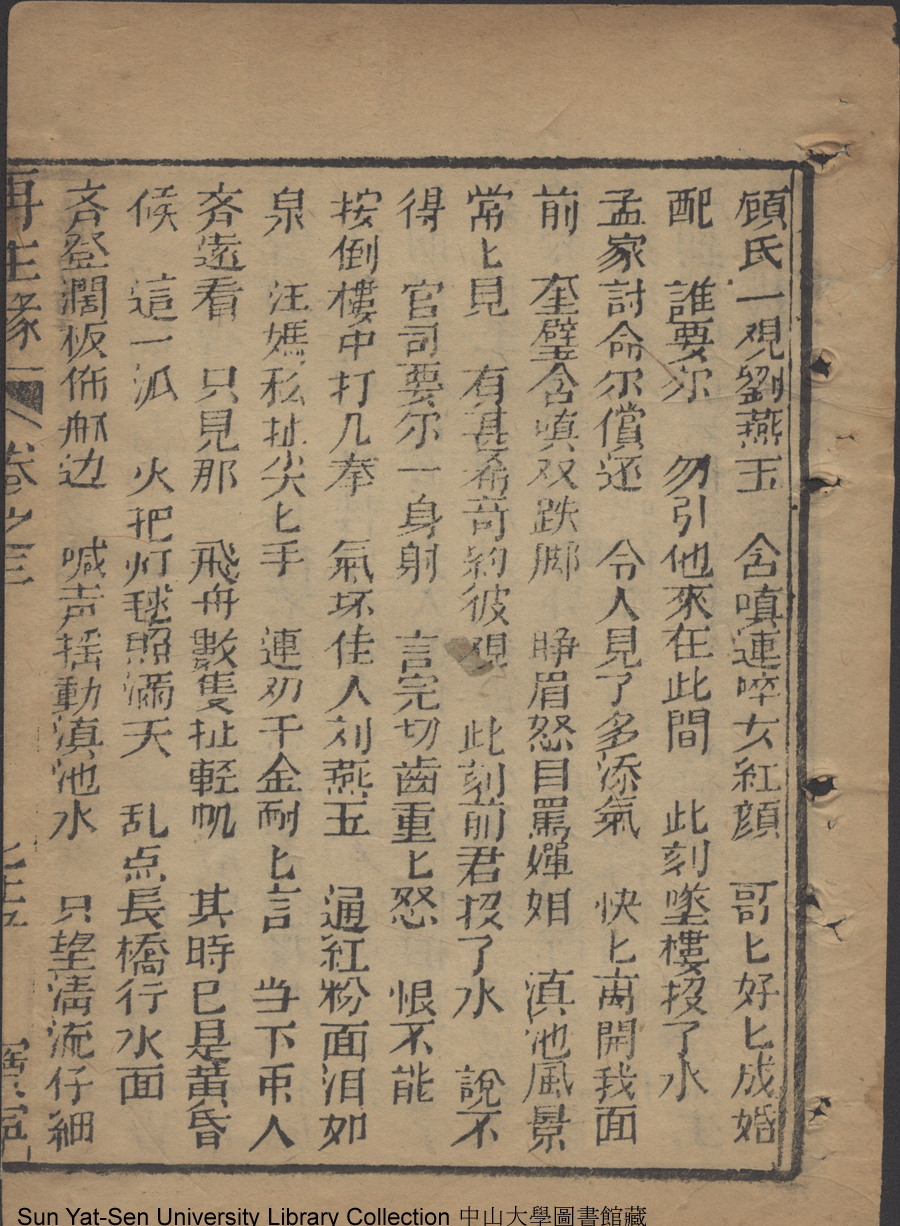 顧氏一覌劉燕玉　含嗔連啐女紅顔　哥匕好匕成婚
配　誰要尔　勿引他來在此間　此刻墜樓投了水
孟家討命尔償还　令人見了多添氣　快匕离開我面
前　奎璧含嗔双跌脚　睁眉怒目罵嬋娟　滇池風景
常匕見　有甚希竒約彼覌　此刻前君投了水　說不
得　官司要尔一身射　言完切齒重匕怒　恨不能
按倒樓中打几拳　氣坏佳人刘燕玉　通紅粉面泪如
泉　汪媽私扯尖匕手　連劝千金耐匕言　当下兩人
斉遠看　只見那　飛舟數隻扯輕帆　其時已是黄昏
候　這一派　火把灯毬照滿天　乱点長橋行水面
斉登濶板佈舡边　喊声摇動滇池水　只望清流仔細
再生緣　卷之三　七十五
Sun Yat-Sen University Library Collection 中山大學圖書館藏